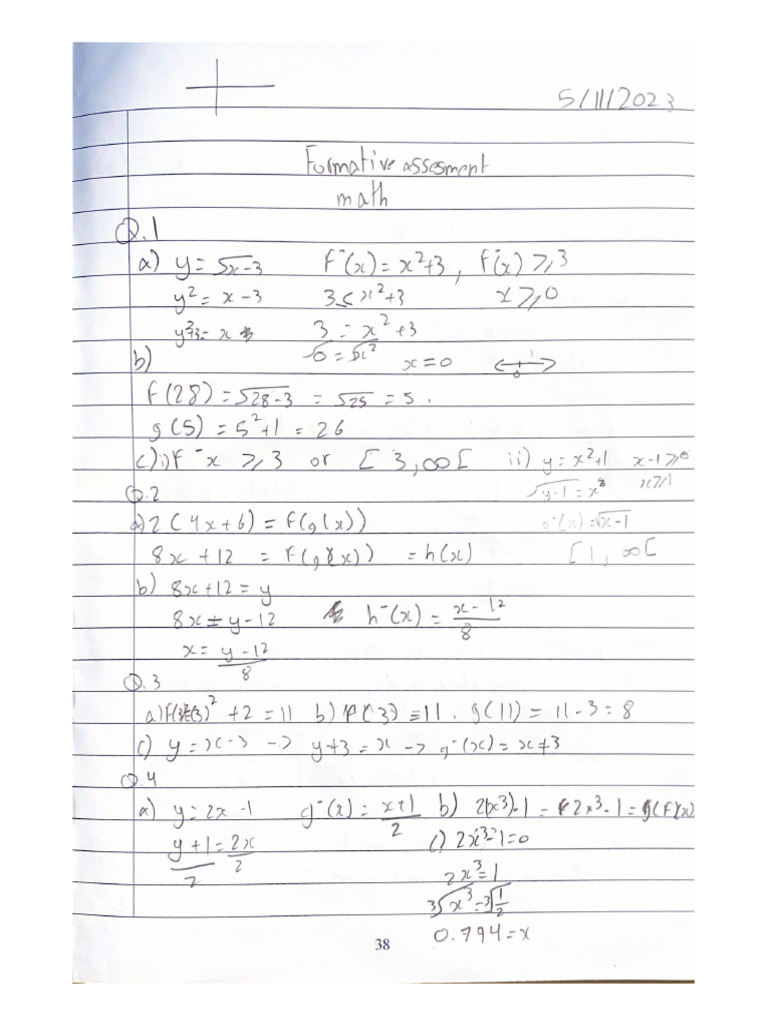 5/11/2023
Formative assesment
math
Q.1
a) y = √x-3    f⁻(x) = x²+3 , f⁻(x) ⩾ 3
y² = x - 3    3 ≤ x²+3    x ⩾ 0
y²+3 = x    3 = x² + 3
√0 = √x²    x = 0
b)
f(28) = √28-3 = √25 = 5.
g(5) = 5²+1 = 26
c) i) f⁻x ⩾ 3 or [3,∞[    ii) y = x²+1    x-1 ⩾ 0
√y-1 = x    x ⩾ 1
Q.2
a) 2(4x+6) = f(g(x))    g⁻(x) = √x-1
8x + 12 = f(g(x)) = h(x)    [1, ∞[
b) 8x+12 = y
8x = y-12    h⁻(x) = x-12/8
x = y-12/8
Q.3
a) f(3)=(3)² + 2 = 11    b) f(3) = 11. g(11) = 11-3 = 8
c) y = x-3 -> y+3 = x -> g⁻(x) = x+3
Q.4
a) y = 2x -1    g⁻(x) = x+1/2    b) 2(x³)-1 = 2x³-1 = g(f(x))
y+1/2 = 2x/2    c) 2x³-1=0
2x³ = 1
3√x³ = 3√1/2
0.794 = x
38